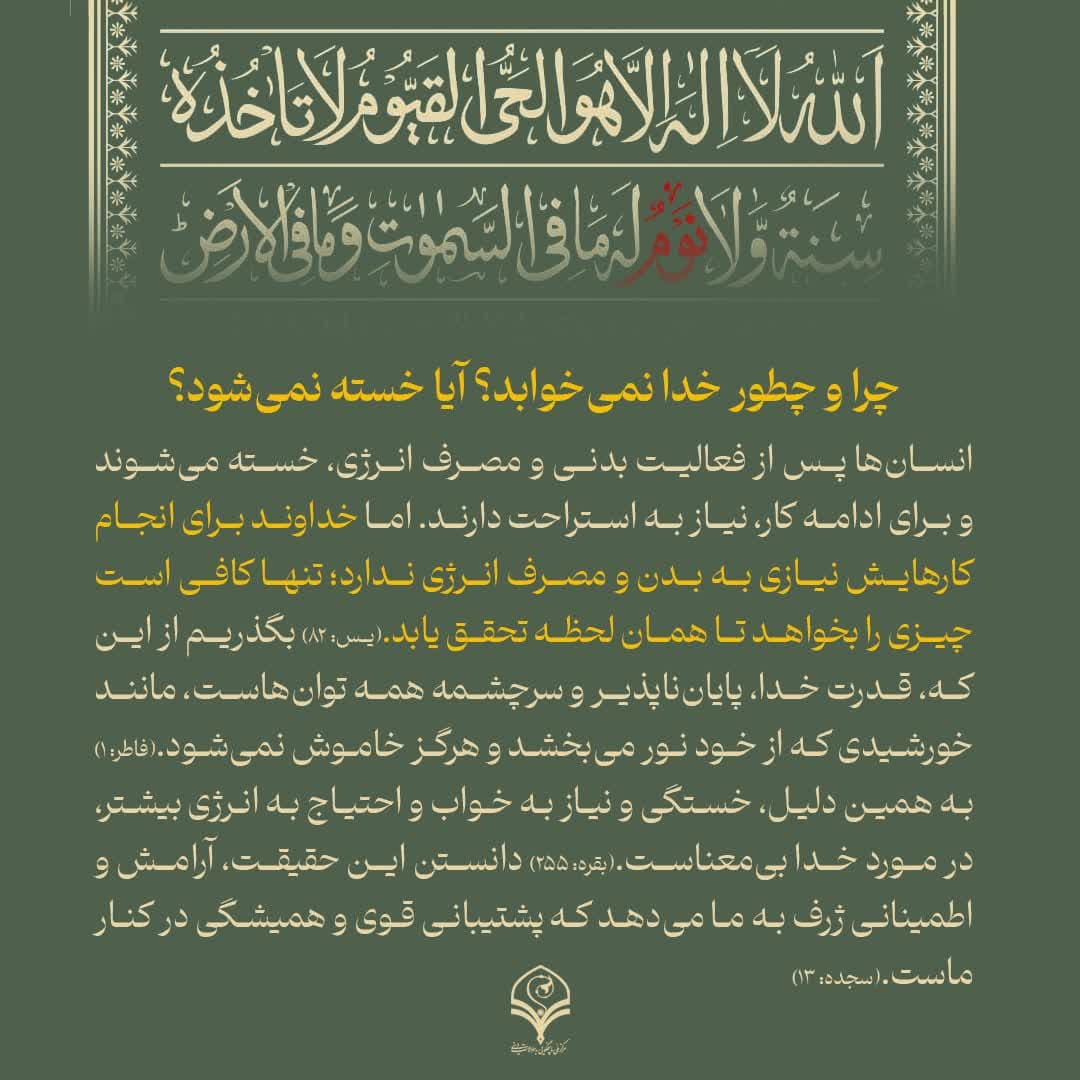 اَللهُ لَآ اِلٰهَ اِلَّا هُوَ الْحَیُّ الْقَیُّوْمُ لَا تَاْخُذُهٗ
سِنَةٌ وَّلَا نَوْمٌ لَهٗ مَا فِی السَّمٰوٰتِ وَمَا فِی الْاَرْضِ ط
چرا و چطور خدا نمی‌خوابد؟ آیا خسته نمی‌شود؟
انسان‌ها پس از فعالیت بدنی و مصرف انرژی، خسته می‌شوند
و برای ادامه کار، نیاز به استراحت دارند. اما خداوند برای انجام
کارهایش نیازی به بدن و مصرف انرژی ندارد؛ تنها کافی است
چیزی را بخواهد تا همان لحظه تحقق یابد.(یس: ۸۲) بگذریم از این
که، قدرت خدا، پایان‌ناپذیر و سرچشمه همه توان‌هاست، مانند
خورشیدی که از خود نور می‌بخشد و هرگز خاموش نمی‌شود.(فاطر: ۱)
به همین دلیل، خستگی و نیاز به خواب و احتیاج به انرژی بیشتر،
در مورد خدا بی‌معناست.(بقره: ۲۵۵) دانستن این حقیقت، آرامش و
اطمینانی ژرف به ما می‌دهد که پشتیبانی قوی و همیشگی در کنار
ماست.(سجده: ۱۳)